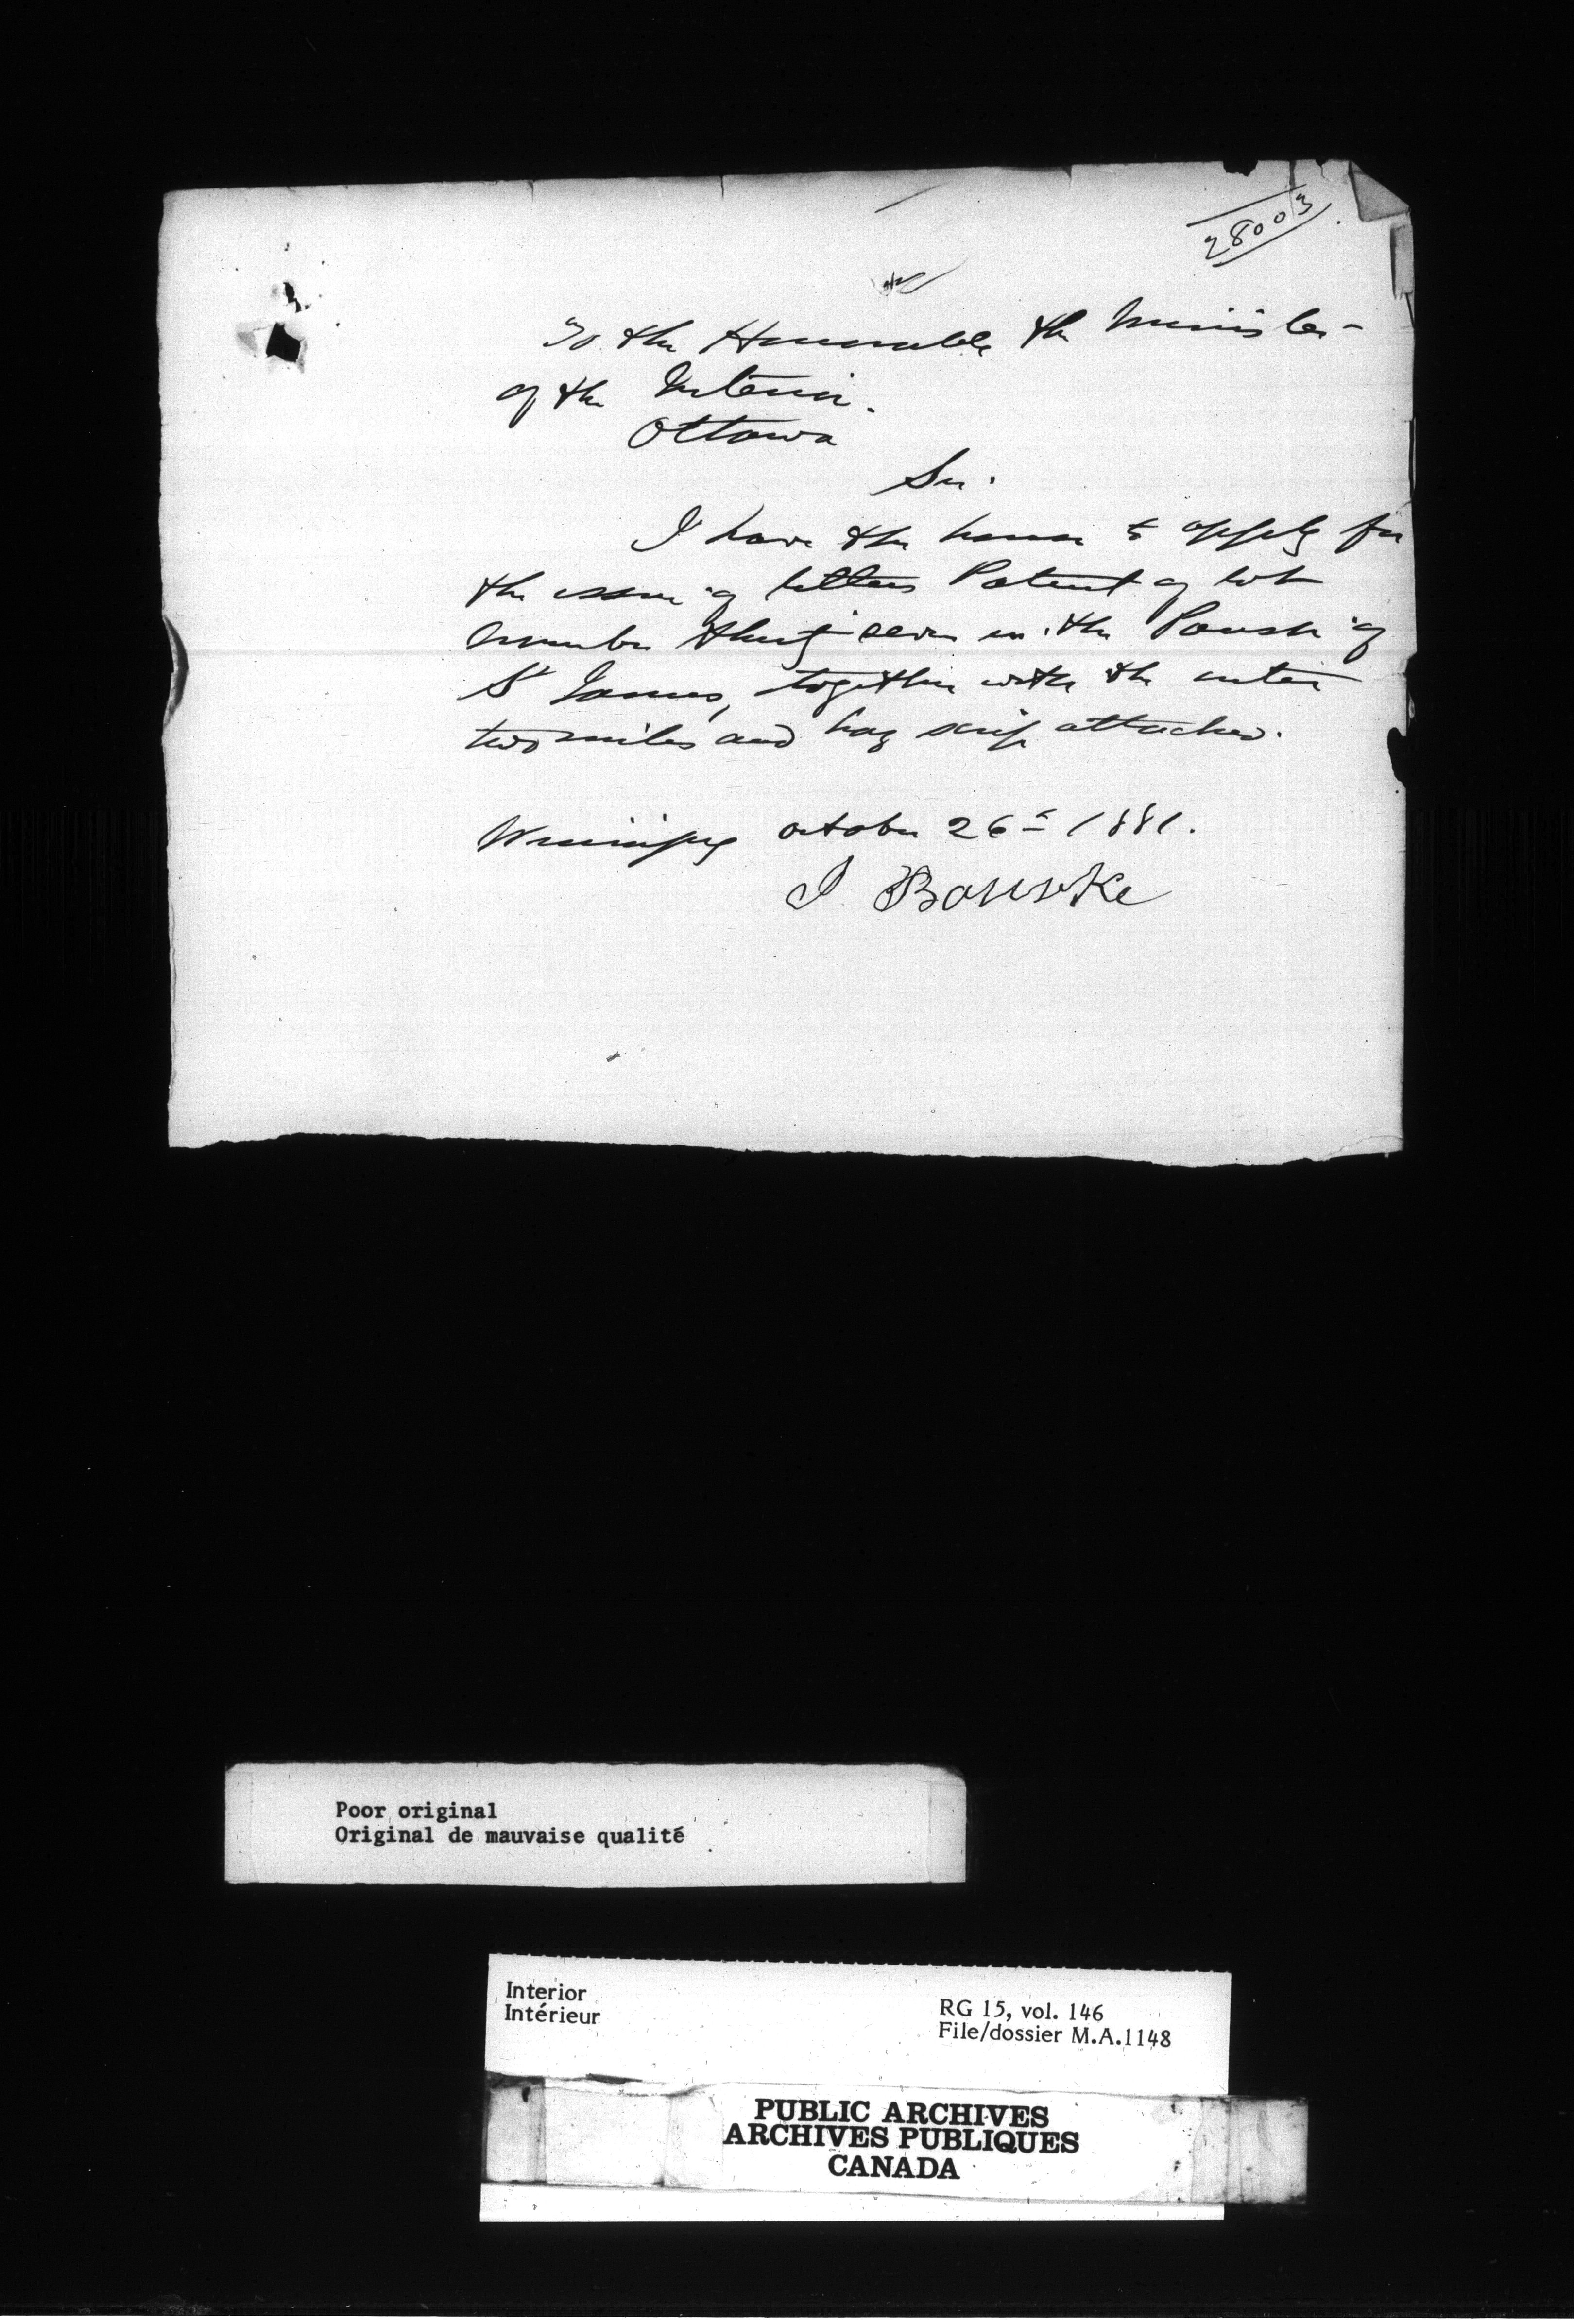 28003
To the Honorable the Minister
of the Interior.
Ottawa
Sir.
I have the honor to apply for
the issue of letters Patent of lot
number thirty seven in the Parish of
St James, together with the outer
two miles and hay scrip attached.
Winnipeg October 26th 1881.
J Bourke
Poor original
Original de mauvaise qualité
Interior
Intérieur
RG 15, vol. 146
File/dossier M.A.1148
PUBLIC ARCHIVES
ARCHIVES PUBLIQUES
CANADA